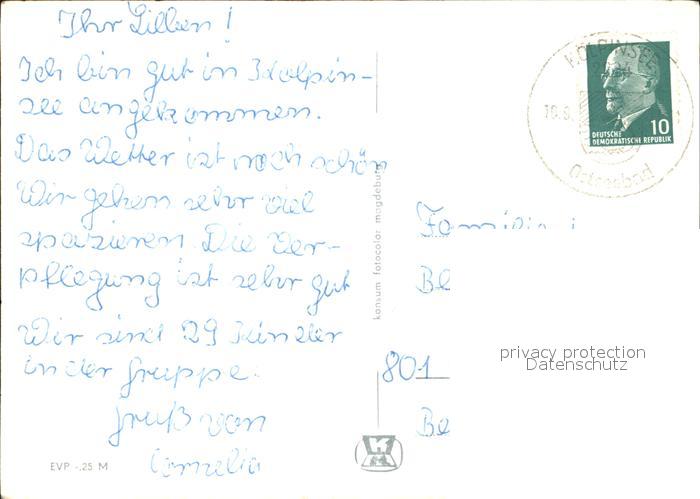 Ihr Lieben!
Ich bin gut in Kölpin-
see angekommen.
Das Wetter ist noch schön
Wir gehen sehr viel
spazieren. Die Ver-
pflegung ist sehr gut
Wir sind 29 Kinder
in der Gruppe.
Gruß von
Cornelia
EVP -,25 M
konsum fotocolor magdeburg
KÖLPINSEE
Ostseebad
10
DEUTSCHE
DEMOKRATISCHE REPUBLIK
Familie
Be
801
Be
privacy protection
Datenschutz